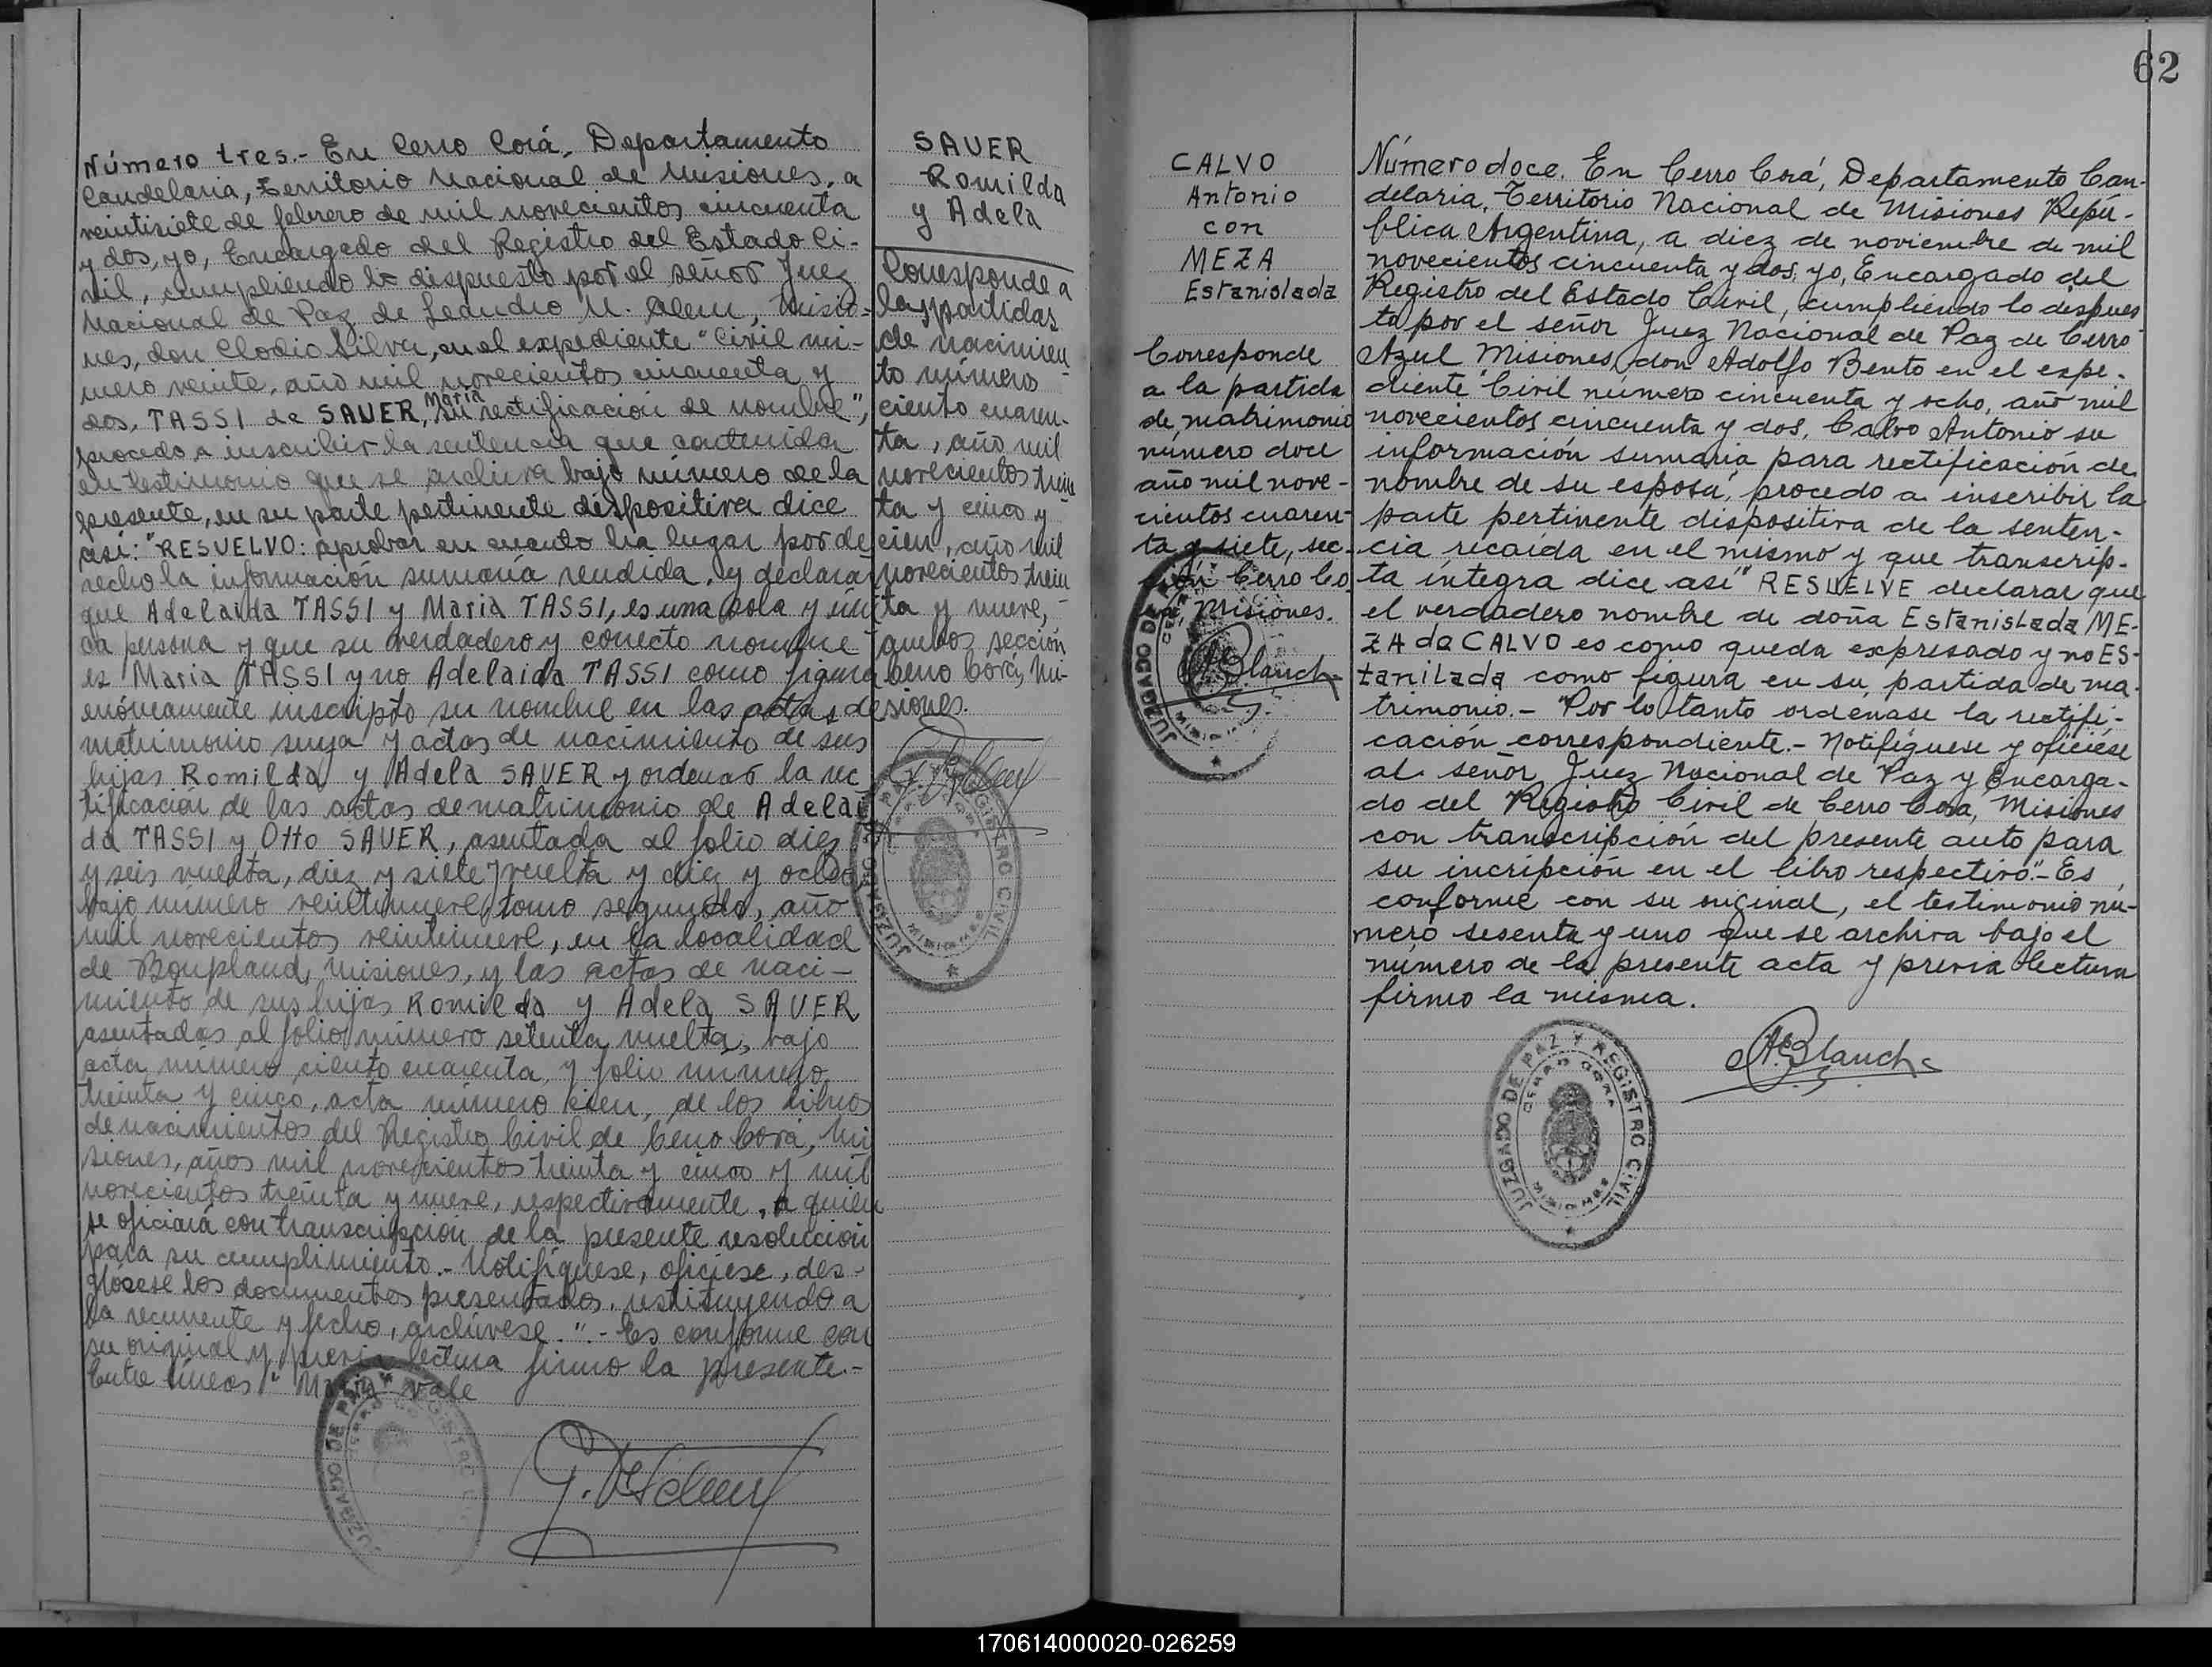 Número tres.- En Cerro Corá, Departamento
Candelaria, Territorio Nacional de Misiones, a
veintisiete de febrero de mil novecientos cincuenta
y dos, yo, Encargado del Registro del Estado Ci-
vil, cumpliendo lo dispuesto por el señor Juez
Nacional de Paz de Leandro N. Alem, Misio-
nes, don Clodio Silva, en el expediente "Civil nú-
mero veinte, año mil novecientos cincuenta y
María
dos, TASSI de SAUER, su rectificación de nombre",
procedo a inscribir la sentencia que contenida
en testimonio que se archiva bajo número de la
presente, en su parte pertinente dispositiva dice
así: "RESUELVO: aprobar en cuanto ha lugar por de
recho la información sumaria rendida, y declarar
que Adelaida TASSI y Maria TASSI, es una sola y úni
ca persona y que su verdadero y correcto nombre
es Maria TASSI y no Adelaida TASSI como figura
erróneamente inscripto su nombre en las actas de
matrimonio suya y actas de nacimiento de sus
hijas Romilda y Adela SAUER y ordenar la rec
tificación de las actas de matrimonio de Adelai
da TASSI y Otto SAUER, asentada al folio diez
y seis vuelta, diez y siete, vuelta y diez y ocho
bajo número veintinueve, tomo segundo, año
mil novecientos veintinueve, en la localidad
de Bonpland, Misiones, y las actas de naci-
miento de sus hijas Romilda y Adela SAUER
asentadas al folio número setenta vuelta, bajo
acta número ciento cuarenta, y folio número
treinta y cinco, acta número cien, de los libros
de nacimientos del Registro Civil de Cerro Corá, Mi
siones, años mil novecientos treinta y cinco y mil
novecientos treinta y nueve, respectivamente, a quien
se oficiará con transcripción de la presente resolución
para su cumplimiento.- Notifíquese, ofíciese, des-
glósese los documentos presentados, restituyendo a
la recurrente y fecho, archívese.".- Es conforme con
su original y previa lectura firmo la presente.-
Entre líneas "María" vale
SAUER
Romilda
y Adela
Corresponde a
las partidas
de nacimien
to número
ciento cuaren-
ta, año mil
novecientos trein
ta y cinco y
cien, año mil
novecientos trein
ta y nueve,-
ambos, sección
Cerro Corá, Mi-
siones.
JUZGADO DE PAZ Y REGISTRO CIVIL
CERRO CORA
MISIONES
62
CALVO
Antonio
con
MEZA
Estanislada
Corresponde
a la partida
de matrimonio
número doce
año mil nove-
cientos cuaren-
ta y siete, sec-
ción Cerro Co
rá Misiones.
A. Blanch
Número doce. En Cerro Corá, Departamento Can-
delaria, Territorio Nacional de Misiones Repú-
blica Argentina, a diez de noviembre de mil
novecientos cincuenta y dos, yo, Encargado del
Registro del Estado Civil, cumpliendo lo dispues
to por el señor Juez Nacional de Paz de Cerro
Azul Misiones, don Adolfo Bento en el expe-
diente "Civil número cincuenta y ocho, año mil
novecientos cincuenta y dos, Calvo Antonio su
información sumaria para rectificación de
nombre de su esposa", procedo a inscribir la
parte pertinente dispositiva de la senten-
cia recaída en el mismo y que transcrip-
ta íntegra dice así "RESUELVE declarar que
el verdadero nombre de doña Estanislada ME-
ZA de CALVO es como queda expresado y no ES-
tanilada como figura en su partida de ma-
trimonio.- Por lo tanto ordénase la rectifi-
cación correspondiente.- Notifíquese y ofíciese
al señor Juez Nacional de Paz y Encarga-
do del Registro Civil de Cerro Corá, Misiones
con transcripción del presente auto para
su incripción en el libro respectivo".- Es
conforme con su original, el testimonio nú-
mero sesenta y uno que se archiva bajo el
número de la presente acta y previa lectura
firmo la misma.
A. Blanch
JUZGADO DE PAZ Y REGISTRO CIVIL
CERRO CORA
MISIONES
170614000020-026259